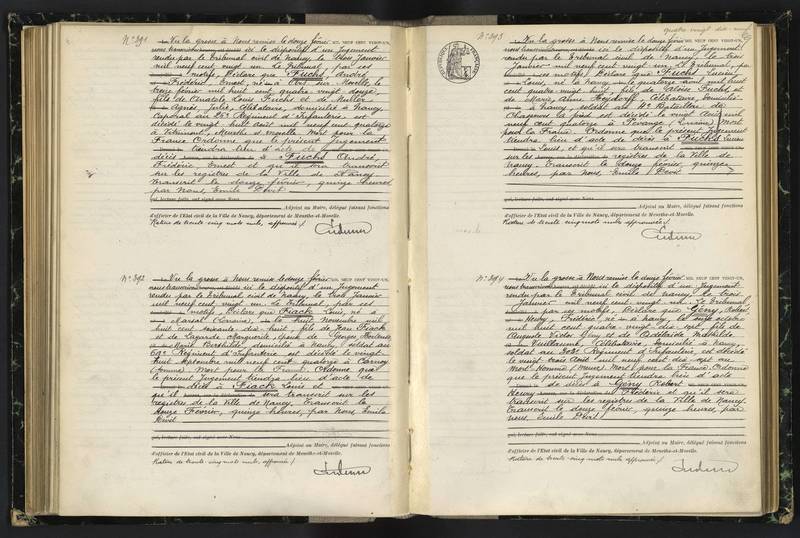 N° 391
Vu la grosse à Nous remise le douze février MIL NEUF CENT VINGT-UN,
nous transcrivons ici le dispositif d'un Jugement
rendu par le Tribunal civil de Nancy, le trois Janvier
mil neuf cent vingt un. Le Tribunal, par ces
motifs, Déclare que Fuchs, André
Frédéric, Ernest, né à
treize février mil huit cent quatre vingt douze
fils de Louis Fuchs et de Muller
Agnès, Julie, Célibataire, domicilié à Nancy,
Caporal au Régiment d'Infanterie est
décédé le vingt huit août mil neuf cent quatorze
à Vitrimont, Meurthe et Moselle Mort pour la
France Ordonne que le présent Jugement
tiendra lieu d'acte de
décès à Fuchs André,
Frédéric, Ernest et qu'il sera transcrit
sur les registres de la Ville de Nancy
Transcrit le douze février, quinze heures
par Nous, Emile
qui, lecture faite, ont signé avec Nous
Adjoint au Maire, délégué faisant fonctions
d'officier de l'Etat civil de la Ville de Nancy, département de Meurthe-et-Moselle.
Rature de trente cinq mots nuls, approuvée /
N° 392
Vu la grosse à Nous remise le douze février MIL NEUF CENT VINGT-UN,
nous transcrivons ici le dispositif d'un Jugement
rendu par le Tribunal civil de Nancy, le trois Janvier
mil neuf cent vingt un. Le Tribunal, par ces
motifs, Déclare que Fiack Louis, né à
Marsal (Lorraine), le huit Novembre mil
huit cent soixante dix huit, fils de Jean Fiack
et de Lagarde Marguerite, époux de Georges
Marie domicilié à Nancy, soldat au
Régiment d'Infanterie est décédé le vingt
huit Septembre mil neuf cent quatorze à Carnoy
(Somme) Mort pour la France. Ordonne que
le présent Jugement tiendra lieu d'acte de
décès à Fiack Louis et
qu'il sera transcrit sur les
registres de la Ville de Nancy Transcrit le
douze Février, quinze heures, par Nous, Emile
qui, lecture faite, ont signé avec Nous
Adjoint au Maire, délégué faisant fonctions
d'officier de l'Etat civil de la Ville de Nancy, département de Meurthe-et-Moselle.
Rature de trente cinq mots nuls, approuvée /
quatre vingt dix neuf
N° 393
Vu la grosse à Nous remise le douze février MIL NEUF CENT VINGT-UN,
nous transcrivons ici le dispositif d'un Jugement
rendu par le Tribunal civil de Nancy, le trois
Janvier mil neuf cent vingt un Le Tribunal, par
ces motifs, Déclare que Fuchs Lucien
Louis, né à Nancy, le quatorze avril mil huit
cent quatre vingt huit, fils de Aloïse Fuchs et
de Marie, Anne Heydorff, Célibataire, domicilié
à Nancy, soldat au Bataillon de
Chasseurs à pied est décédé le vingt août mil
neuf cent quatorze à (Lorraine) Mort
pour la France. Ordonne que le présent Jugement
tiendra lieu d'acte de décès à Fuchs Lucien
Louis, et qu'il sera transcrit
sur les registres de la Ville de
Nancy Transcrit le douze février, quinze
heures, par Nous, Emile
qui, lecture faite, ont signé avec Nous
Adjoint au Maire, délégué faisant fonctions
d'officier de l'Etat civil de la Ville de Nancy, département de Meurthe-et-Moselle.
Rature de trente cinq mots nuls, approuvée /
N° 394
Vu la grosse à Nous remise le douze février MIL NEUF CENT VINGT-UN,
nous transcrivons ici le dispositif d'un Jugement
rendu par le Tribunal civil de Nancy, le trois
Janvier mil neuf cent vingt un. Le Tribunal,
par ces motifs, Déclare que Gény, Robert
Henry, Frédéric, né à Nancy, le
mil huit cent quatre vingt dix sept, fils de
Auguste Victor Gény et de Mathilde
Vuillaume, Célibataire, domicilié à Nancy,
soldat au Régiment d'Infanterie, est décédé
le vingt trois août mil neuf cent dix sept au
Mort Homme (Meuse) Mort pour la France. Ordonne
que le présent Jugement tiendra lieu d'acte
de décès à Gény Robert
Henry Frédéric et qu'il sera
transcrit sur les registres de la Ville de Nancy
Transcrit le douze février, quinze heures, par
nous, Emile
qui, lecture faite, ont signé avec Nous
Adjoint au Maire, délégué faisant fonctions
d'officier de l'Etat civil de la Ville de Nancy, département de Meurthe-et-Moselle.
Rature de trente cinq mots nuls, approuvée /